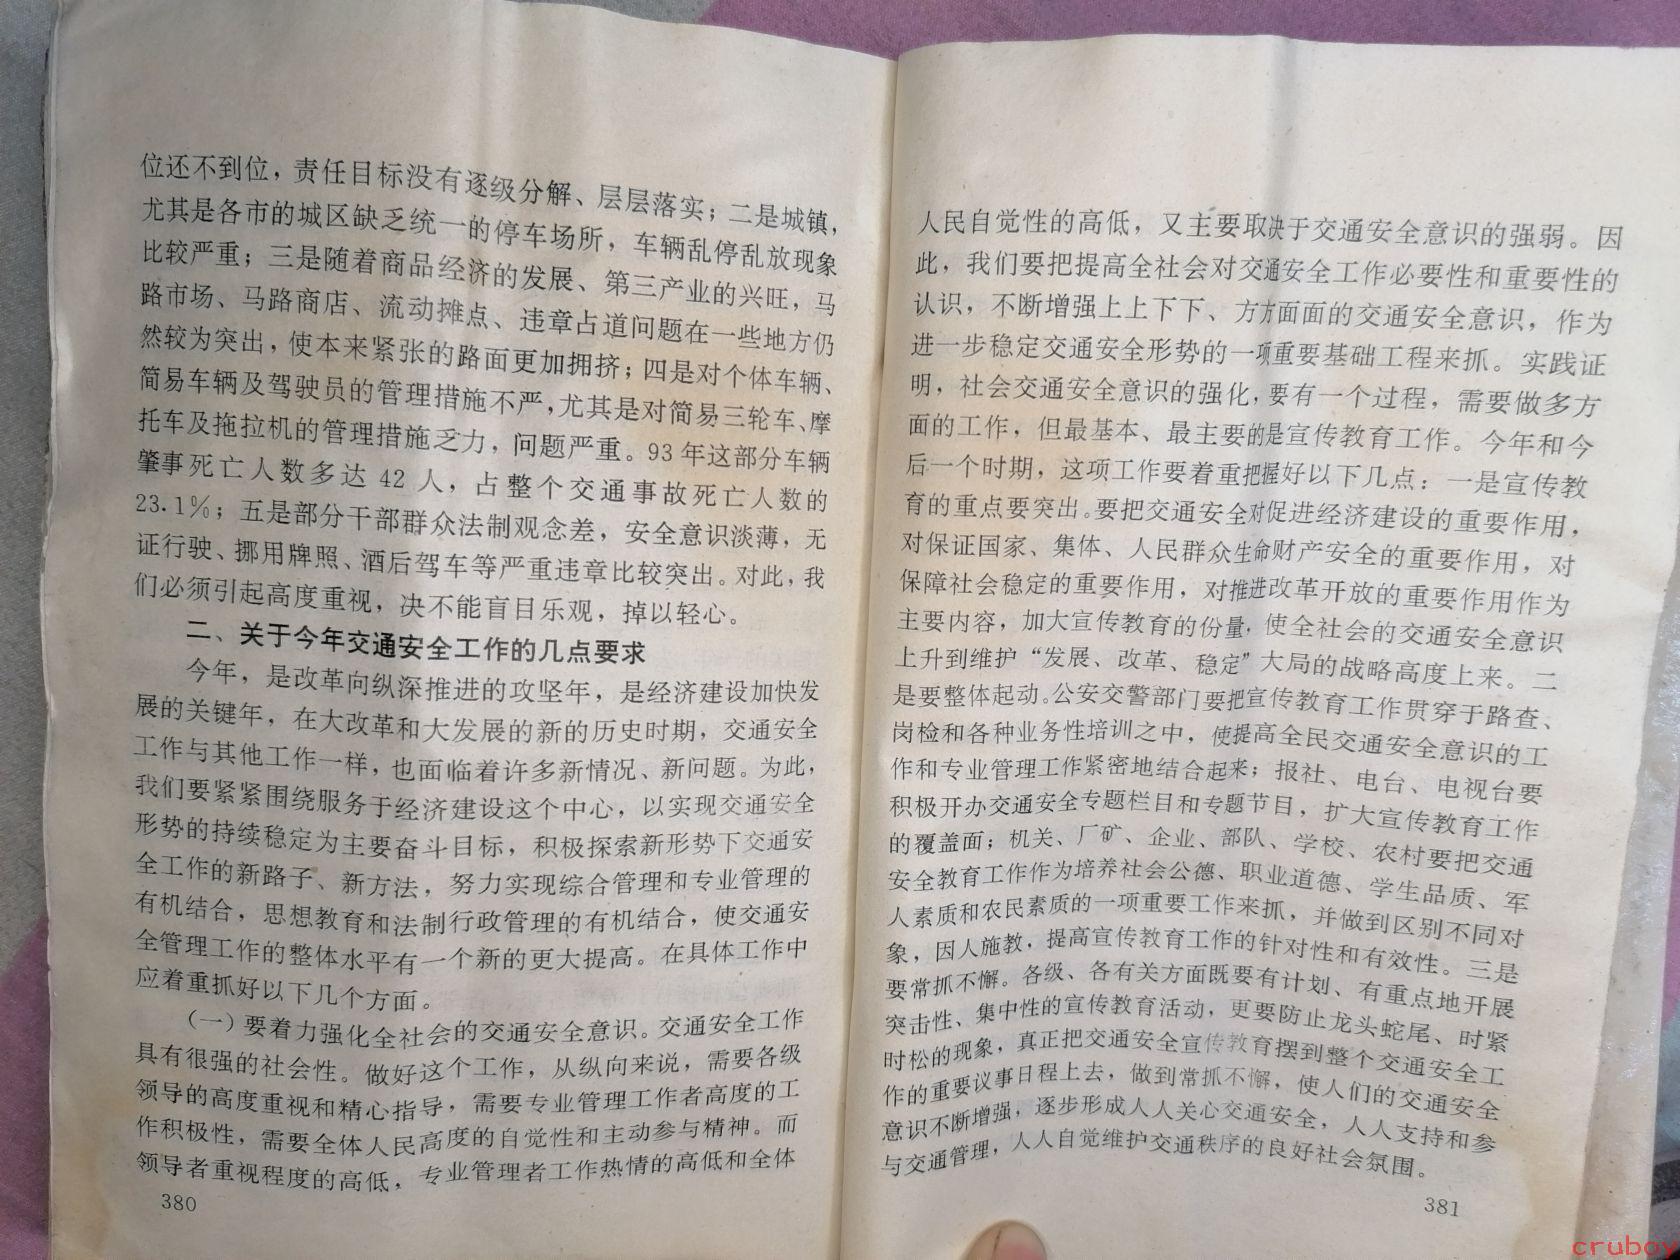 位还不到位，责任目标没有逐级分解、层层落实；二是城镇，
尤其是各市的城区缺乏统一的停车场所，车辆乱停乱放现象
比较严重；三是随着商品经济的发展、第三产业的兴旺，马
路市场、马路商店、流动摊点、违章占道问题在一些地方仍
然较为突出，使本来紧张的路面更加拥挤；四是对个体车辆、
简易车辆及驾驶员的管理措施不严，尤其是对简易三轮车、摩
托车及拖拉机的管理措施乏力，问题严重。93年这部分车辆
肇事死亡人数多达 42 人，占整个交通事故死亡人数的
23.1%；五是部分干部群众法制观念差，安全意识淡薄，无
证行驶、挪用牌照、酒后驾车等严重违章比较突出。对此，我
们必须引起高度重视，决不能盲目乐观，掉以轻心。
二、关于今年交通安全工作的几点要求
今年，是改革向纵深推进的攻坚年，是经济建设加快发
展的关键年，在大改革和大发展的新的历史时期，交通安全
工作与其他工作一样，也面临着许多新情况、新问题。为此，
我们要紧紧围绕服务于经济建设这个中心，以实现交通安全
形势的持续稳定为主要奋斗目标，积极探索新形势下交通安
全工作的新路子、新方法，努力实现综合管理和专业管理的
有机结合，思想教育和法制行政管理的有机结合，使交通安
全管理工作的整体水平有一个新的更大提高。在具体工作中
应着重抓好以下几个方面。
（一）要着力强化全社会的交通安全意识。交通安全工作
具有很强的社会性。做好这个工作，从纵向来说，需要各级
领导的高度重视和精心指导，需要专业管理工作者高度的工
作积极性，需要全体人民高度的自觉性和主动参与精神。而
领导者重视程度的高低，专业管理者工作热情的高低和全体
380
人民自觉性的高低，又主要取决于交通安全意识的强弱。因
此，我们要把提高全社会对交通安全工作必要性和重要性的
认识，不断增强上上下下、方方面面的交通安全意识，作为
进一步稳定交通安全形势的一项重要基础工程来抓。实践证
明，社会交通安全意识的强化，要有一个过程，需要做多方
面的工作，但最基本、最主要的是宣传教育工作。今年和今
后一个时期，这项工作要着重把握好以下几点：一是宣传教
育的重点要突出。要把交通安全对促进经济建设的重要作用，
对保证国家、集体、人民群众生命财产安全的重要作用，对
保障社会稳定的重要作用，对推进改革开放的重要作用作为
主要内容，加大宣传教育的份量，使全社会的交通安全意识
上升到维护“发展、改革、稳定”大局的战略高度上来。二
是要整体起动。公安交警部门要把宣传教育工作贯穿于路查、
岗检和各种业务性培训之中，使提高全民交通安全意识的工
作和专业管理工作紧密地结合起来；报社、电台、电视台要
积极开办交通安全专题栏目和专题节目，扩大宣传教育工作
的覆盖面；机关、厂矿、企业、部队、学校、农村要把交通
安全教育工作作为培养社会公德、职业道德、学生品质、军
人素质和农民素质的一项重要工作来抓，并做到区别不同对
象，因人施教，提高宣传教育工作的针对性和有效性。三是
要常抓不懈。各级、各有关方面既要有计划、有重点地开展
突击性、集中性的宣传教育活动，更要防止龙头蛇尾、时紧
时松的现象，真正把交通安全宣传教育摆到整个交通安全工
作的重要议事日程上去，做到常抓不懈，使人们的交通安全
意识不断增强，逐步形成人人关心交通安全，人人支持和参
与交通管理，人人自觉维护交通秩序的良好社会氛围。
381
cruboy